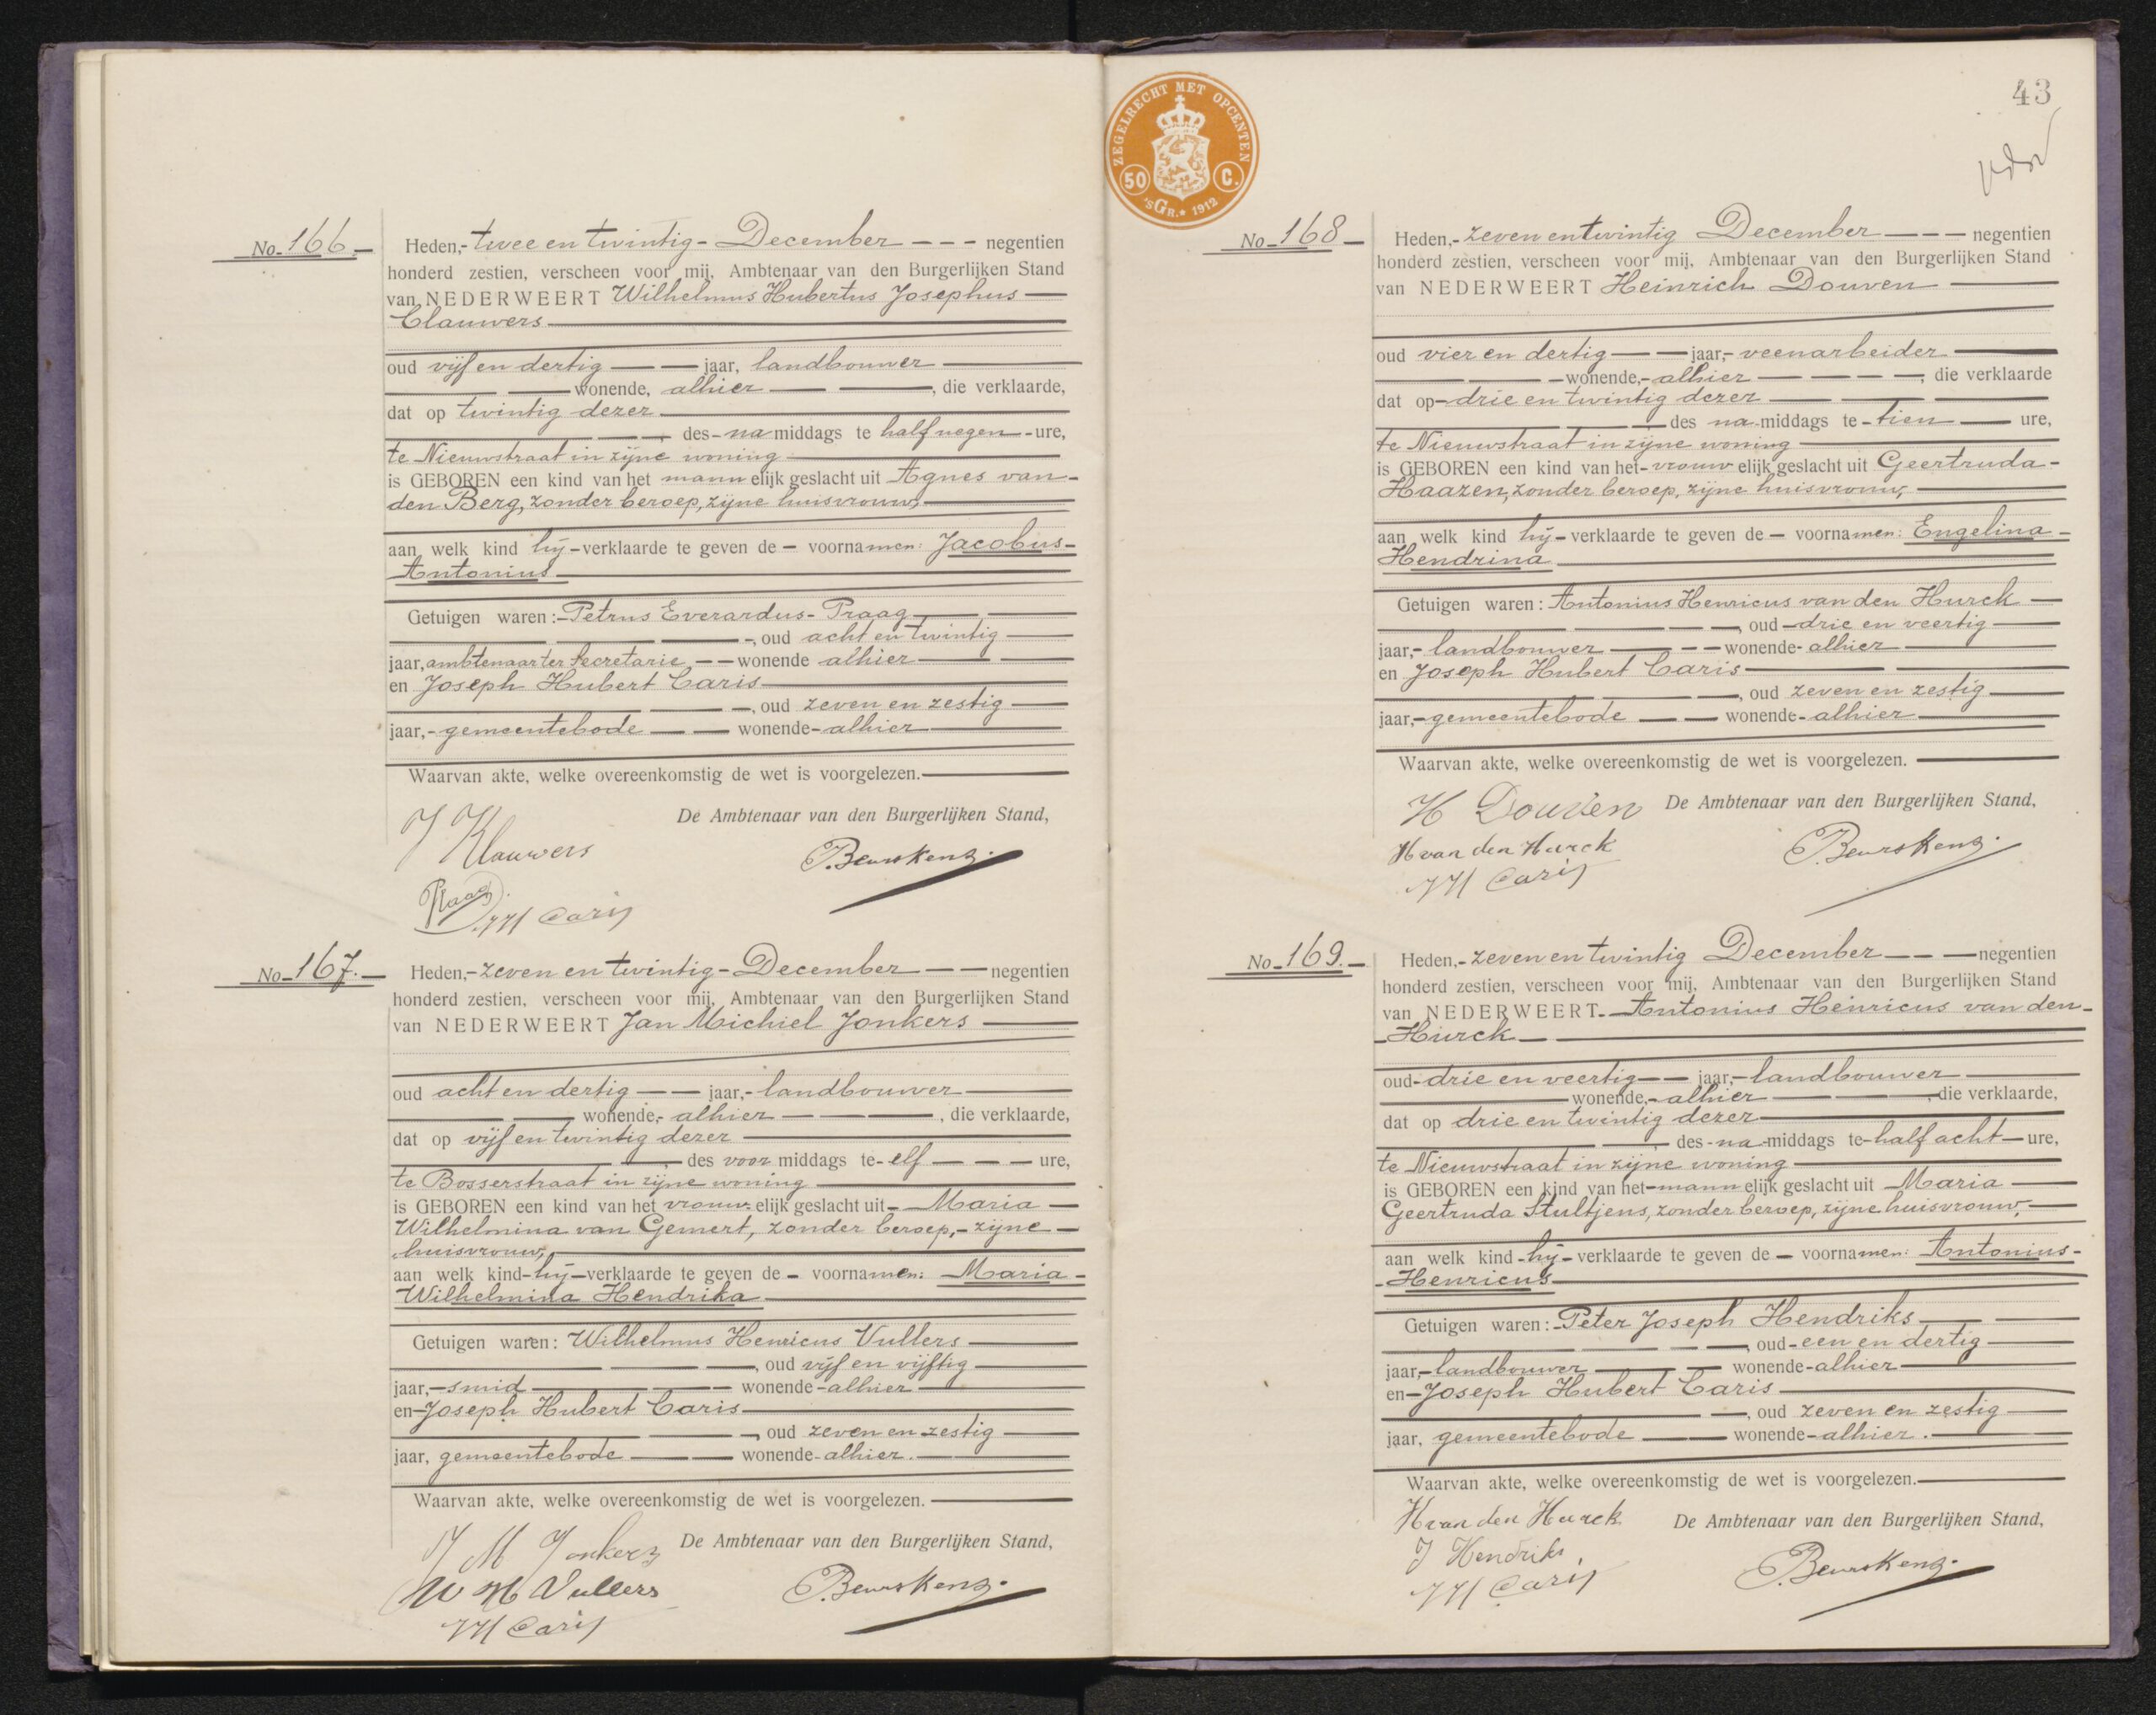 No. 166.
Heden, twee en twintig December negentien
honderd zestien, verscheen voor mij, Ambtenaar van den Burgerlijken Stand
van NEDERWEERT Wilhelmus Hubertus Josephus
Clauwers
oud vijf en dertig jaar, landbouwer
wonende, alhier, die verklaarde,
dat op twintig dezer
des namiddags te half negen ure,
te Nieuwstraat in zijne woning
is GEBOREN een kind van het mannelijk geslacht uit Agnes van
den Berg, zonder beroep, zijne huisvrouw,
aan welk kind hij verklaarde te geven de voornamen: Jacobus
Antonius
Getuigen waren: Petrus Everardus Praag
, oud acht en twintig
jaar, ambtenaar ter Secretarie, wonende alhier
en Joseph Hubert Caris
, oud zeven en zestig
jaar, gemeentebode wonende alhier
Waarvan akte, welke overeenkomstig de wet is voorgelezen.
De Ambtenaar van den Burgerlijken Stand,
J Klauwers
P. Beurskens.
Praag
JH Caris
No. 167.
Heden, zeven en twintig December negentien
honderd zestien, verscheen voor mij, Ambtenaar van den Burgerlijken Stand
van NEDERWEERT Jan Michiel Jonkers
oud acht en dertig jaar, landbouwer
wonende, alhier, die verklaarde,
dat op vijf en twintig dezer
, des voormiddags te elf ure,
te Bosserstraat in zijne woning
is GEBOREN een kind van het vrouwelijk geslacht uit Maria
Wilhelmina van Gemert, zonder beroep, zijne
huisvrouw,
aan welk kind hij verklaarde te geven de voornamen: Maria
Wilhelmina Hendrika
Getuigen waren: Wilhelmus Henricus Vullers
, oud vijf en vijftig
jaar, smid wonende alhier
en Joseph Hubert Caris
, oud zeven en zestig
jaar, gemeentebode wonende alhier.
Waarvan akte, welke overeenkomstig de wet is voorgelezen.
De Ambtenaar van den Burgerlijken Stand,
J M Jonkers
W H Vullers
P. Beurskens.
JH Caris
43
ZEGELRECHT MET OPCENTEN
50 C.
'sGR. 1912
No. 168
Heden, zeven en twintig December negentien
honderd zestien, verscheen voor mij, Ambtenaar van den Burgerlijken Stand
van NEDERWEERT Heinrich Douven
oud vier en dertig jaar, veenarbeider
wonende, alhier, die verklaarde
dat op drie en twintig dezer
des namiddags te tien ure,
te Nieuwstraat in zijne woning
is GEBOREN een kind van het vrouwelijk geslacht uit Geertruda
Haazen, zonder beroep, zijne huisvrouw,
aan welk kind hij verklaarde te geven de voornamen: Engelina
Hendrina
Getuigen waren: Antonius Henricus van den Hurck
, oud drie en veertig
jaar, landbouwer wonende alhier
en Joseph Hubert Caris
, oud zeven en zestig
jaar, gemeentebode wonende alhier
Waarvan akte, welke overeenkomstig de wet is voorgelezen.
H Douven De Ambtenaar van den Burgerlijken Stand,
H van den Hurck
P. Beurskens.
JH Caris
No. 169.
Heden, zeven en twintig December negentien
honderd zestien, verscheen voor mij, Ambtenaar van den Burgerlijken Stand
van NEDERWEERT Antonius Henricus van den
Hurck
oud drie en veertig jaar, landbouwer
wonende, alhier, die verklaarde,
dat op drie en twintig dezer
, des namiddags te half acht ure,
te Nieuwstraat in zijne woning
is GEBOREN een kind van het mannelijk geslacht uit Maria
Geertruda Stultjens, zonder beroep, zijne huisvrouw,
aan welk kind hij verklaarde te geven de voornamen: Antonius
Henricus
Getuigen waren: Peter Joseph Hendriks
, oud een en dertig
jaar, landbouwer wonende alhier
en Joseph Hubert Caris
, oud zeven en zestig
jaar, gemeentebode wonende alhier.
Waarvan akte, welke overeenkomstig de wet is voorgelezen.
H van den Hurck De Ambtenaar van den Burgerlijken Stand,
J Hendriks
P. Beurskens.
JH Caris